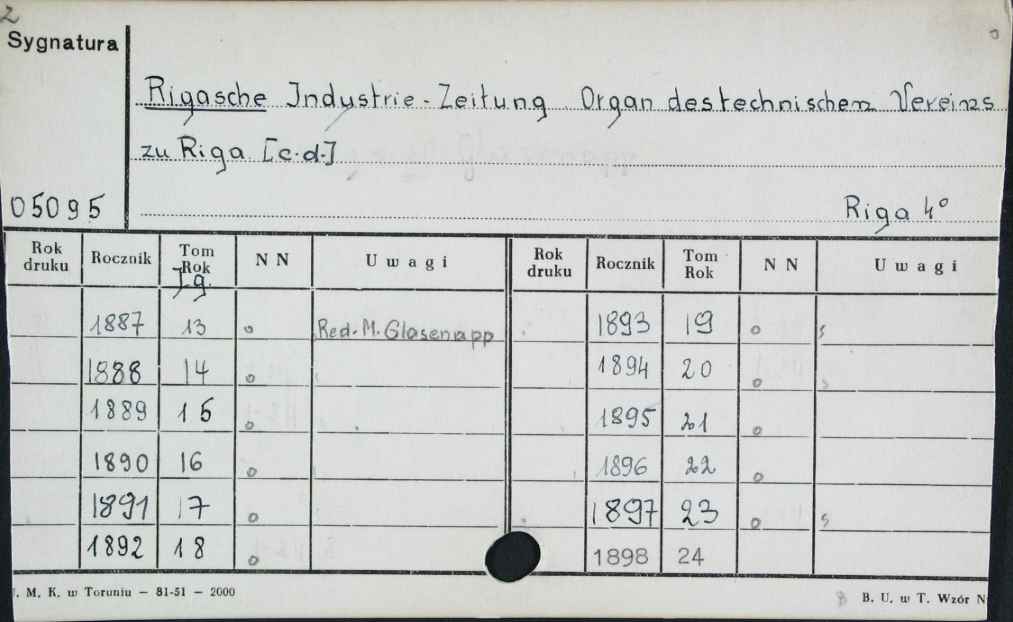 2
Sygnatura
Rigasche Industrie-Zeitung Organ des technischen Vereins
zu Riga [c.d.]
05095
Riga 4°
Rok druku Rocznik Tom Rok N N Uwagi Rok druku Rocznik Tom Rok N N Uwagi
Jg.
1887 13 o Red. M. Glasenapp 1893 19 o
1888 14 o 1894 20 o
1889 15 o 1895 21 o
1890 16 o 1896 22 o
1891 17 o 1897 23 o
1892 18 o 1898 24
. M. K. w Toruniu — 81-51 — 2000
8 B. U. w T. Wzór N